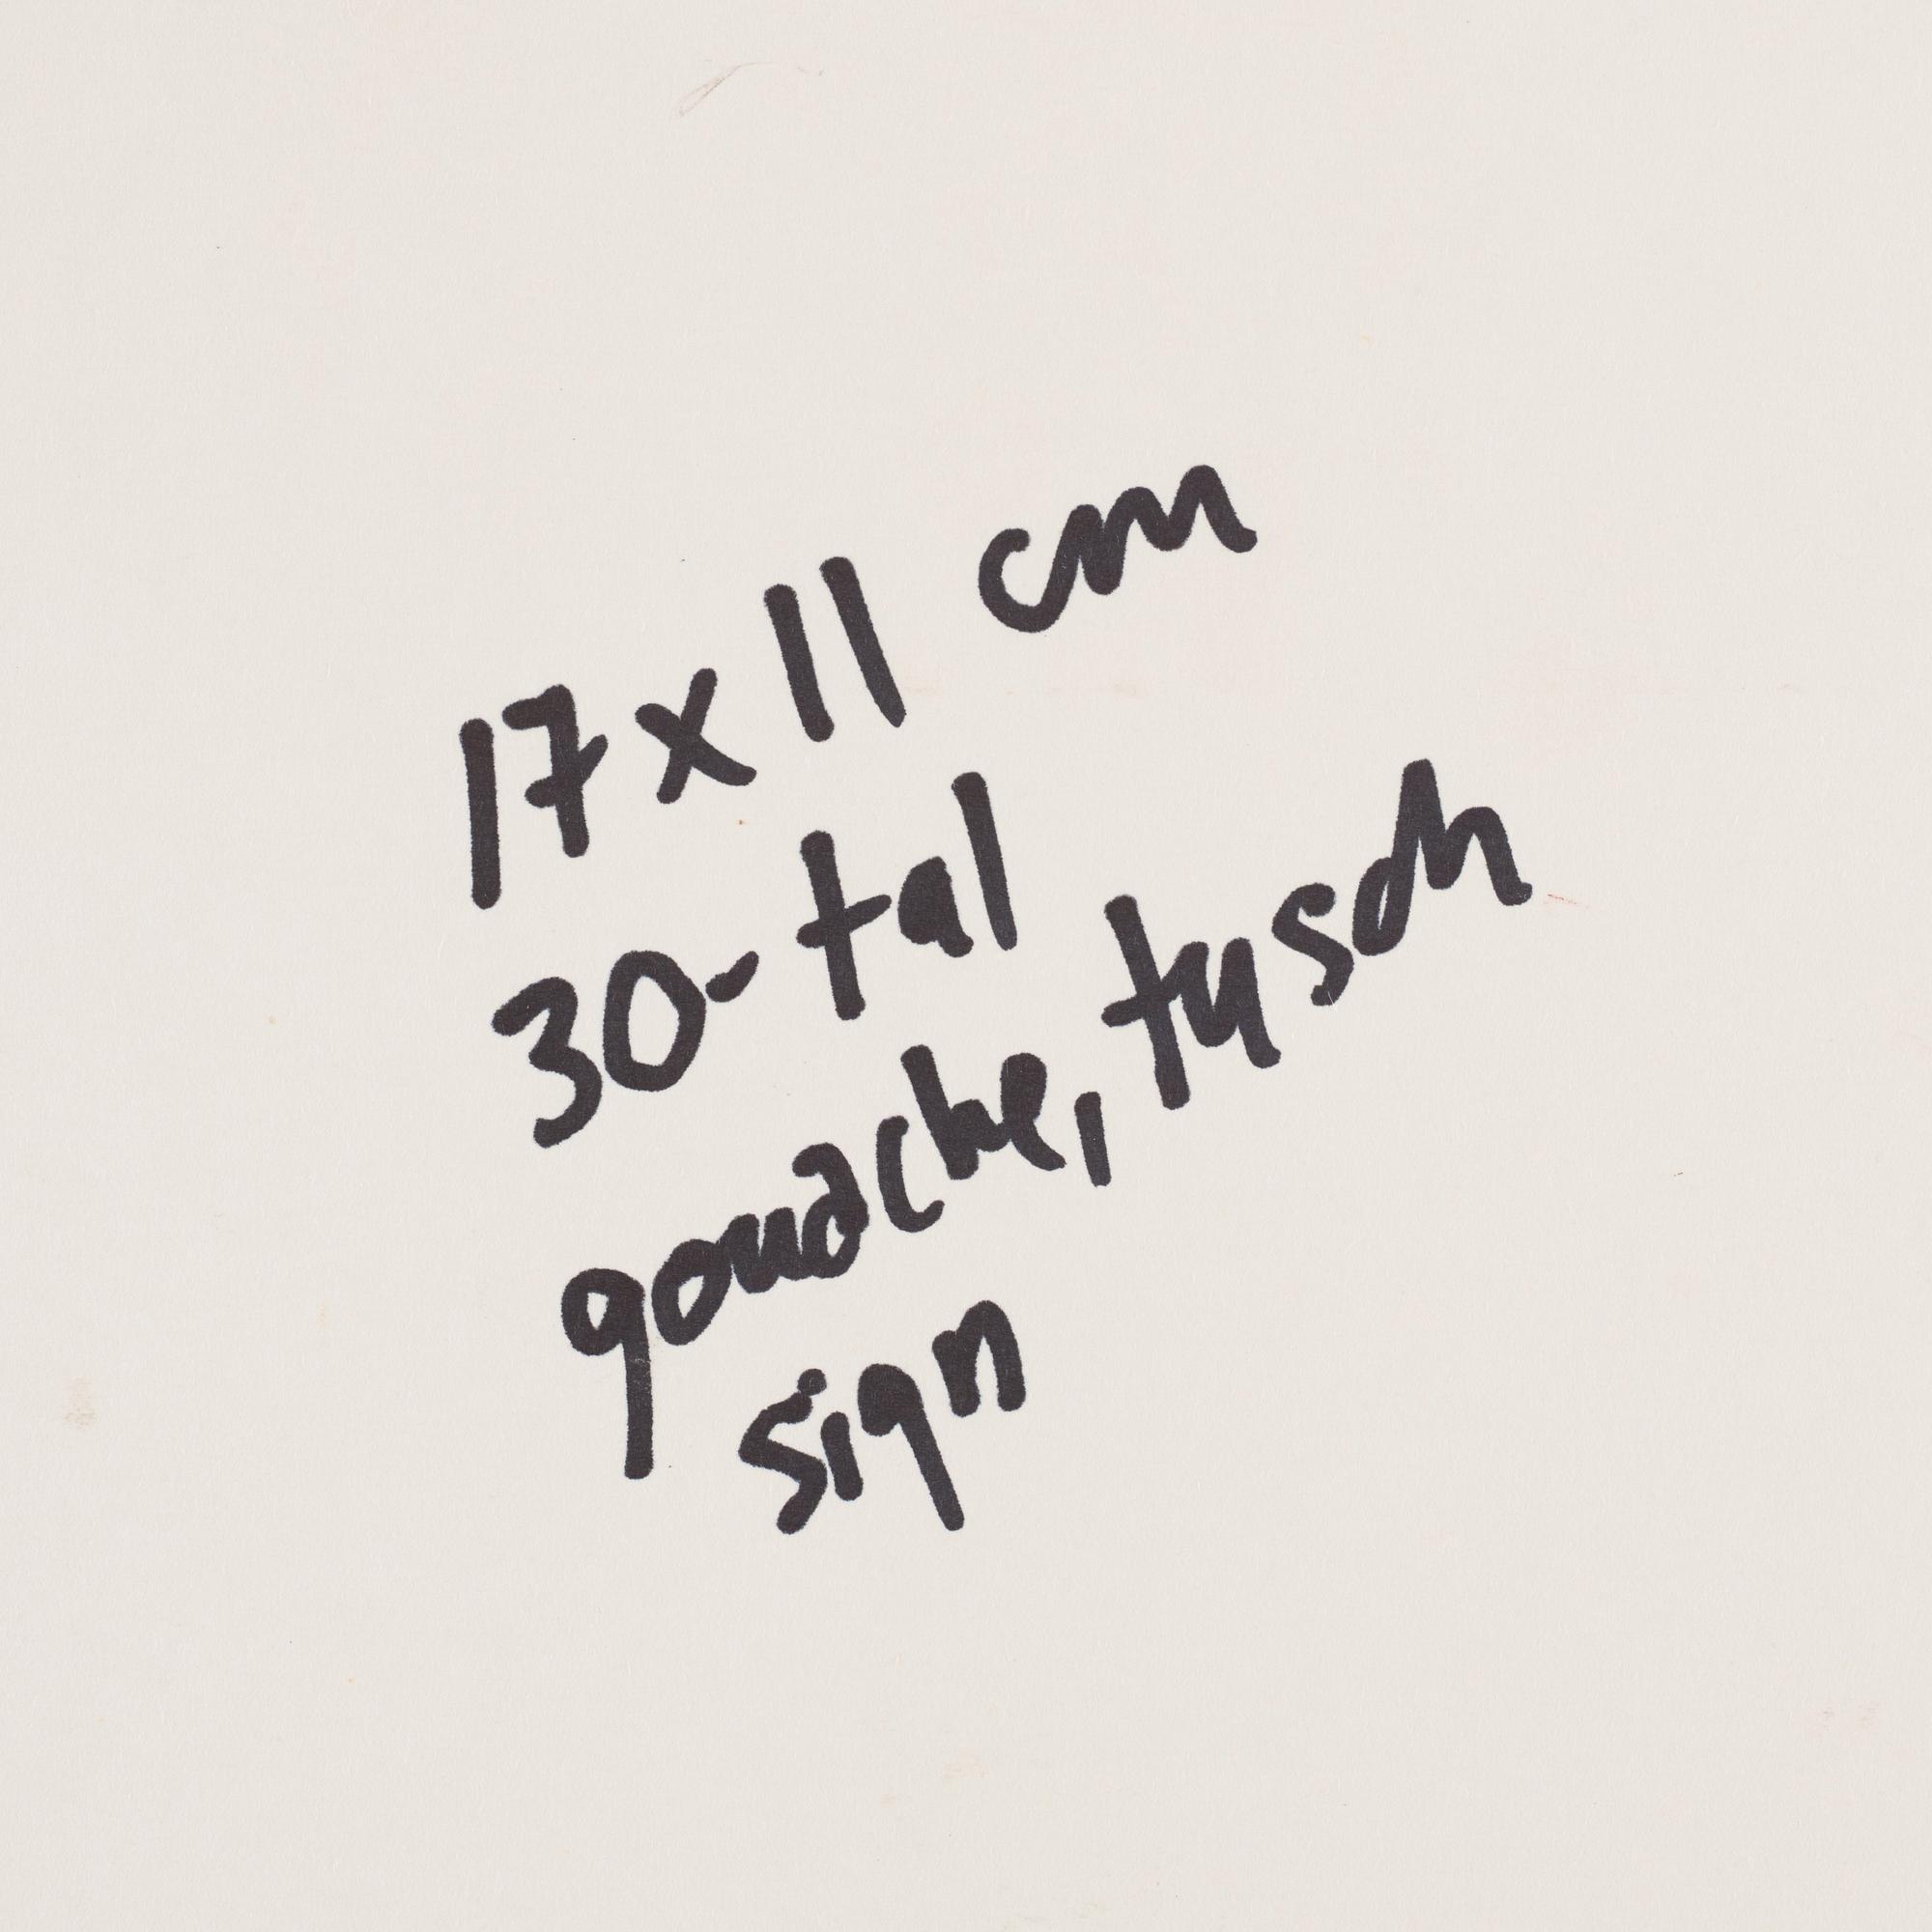 17x11 cm
30-tal
gouache, tusch
sign